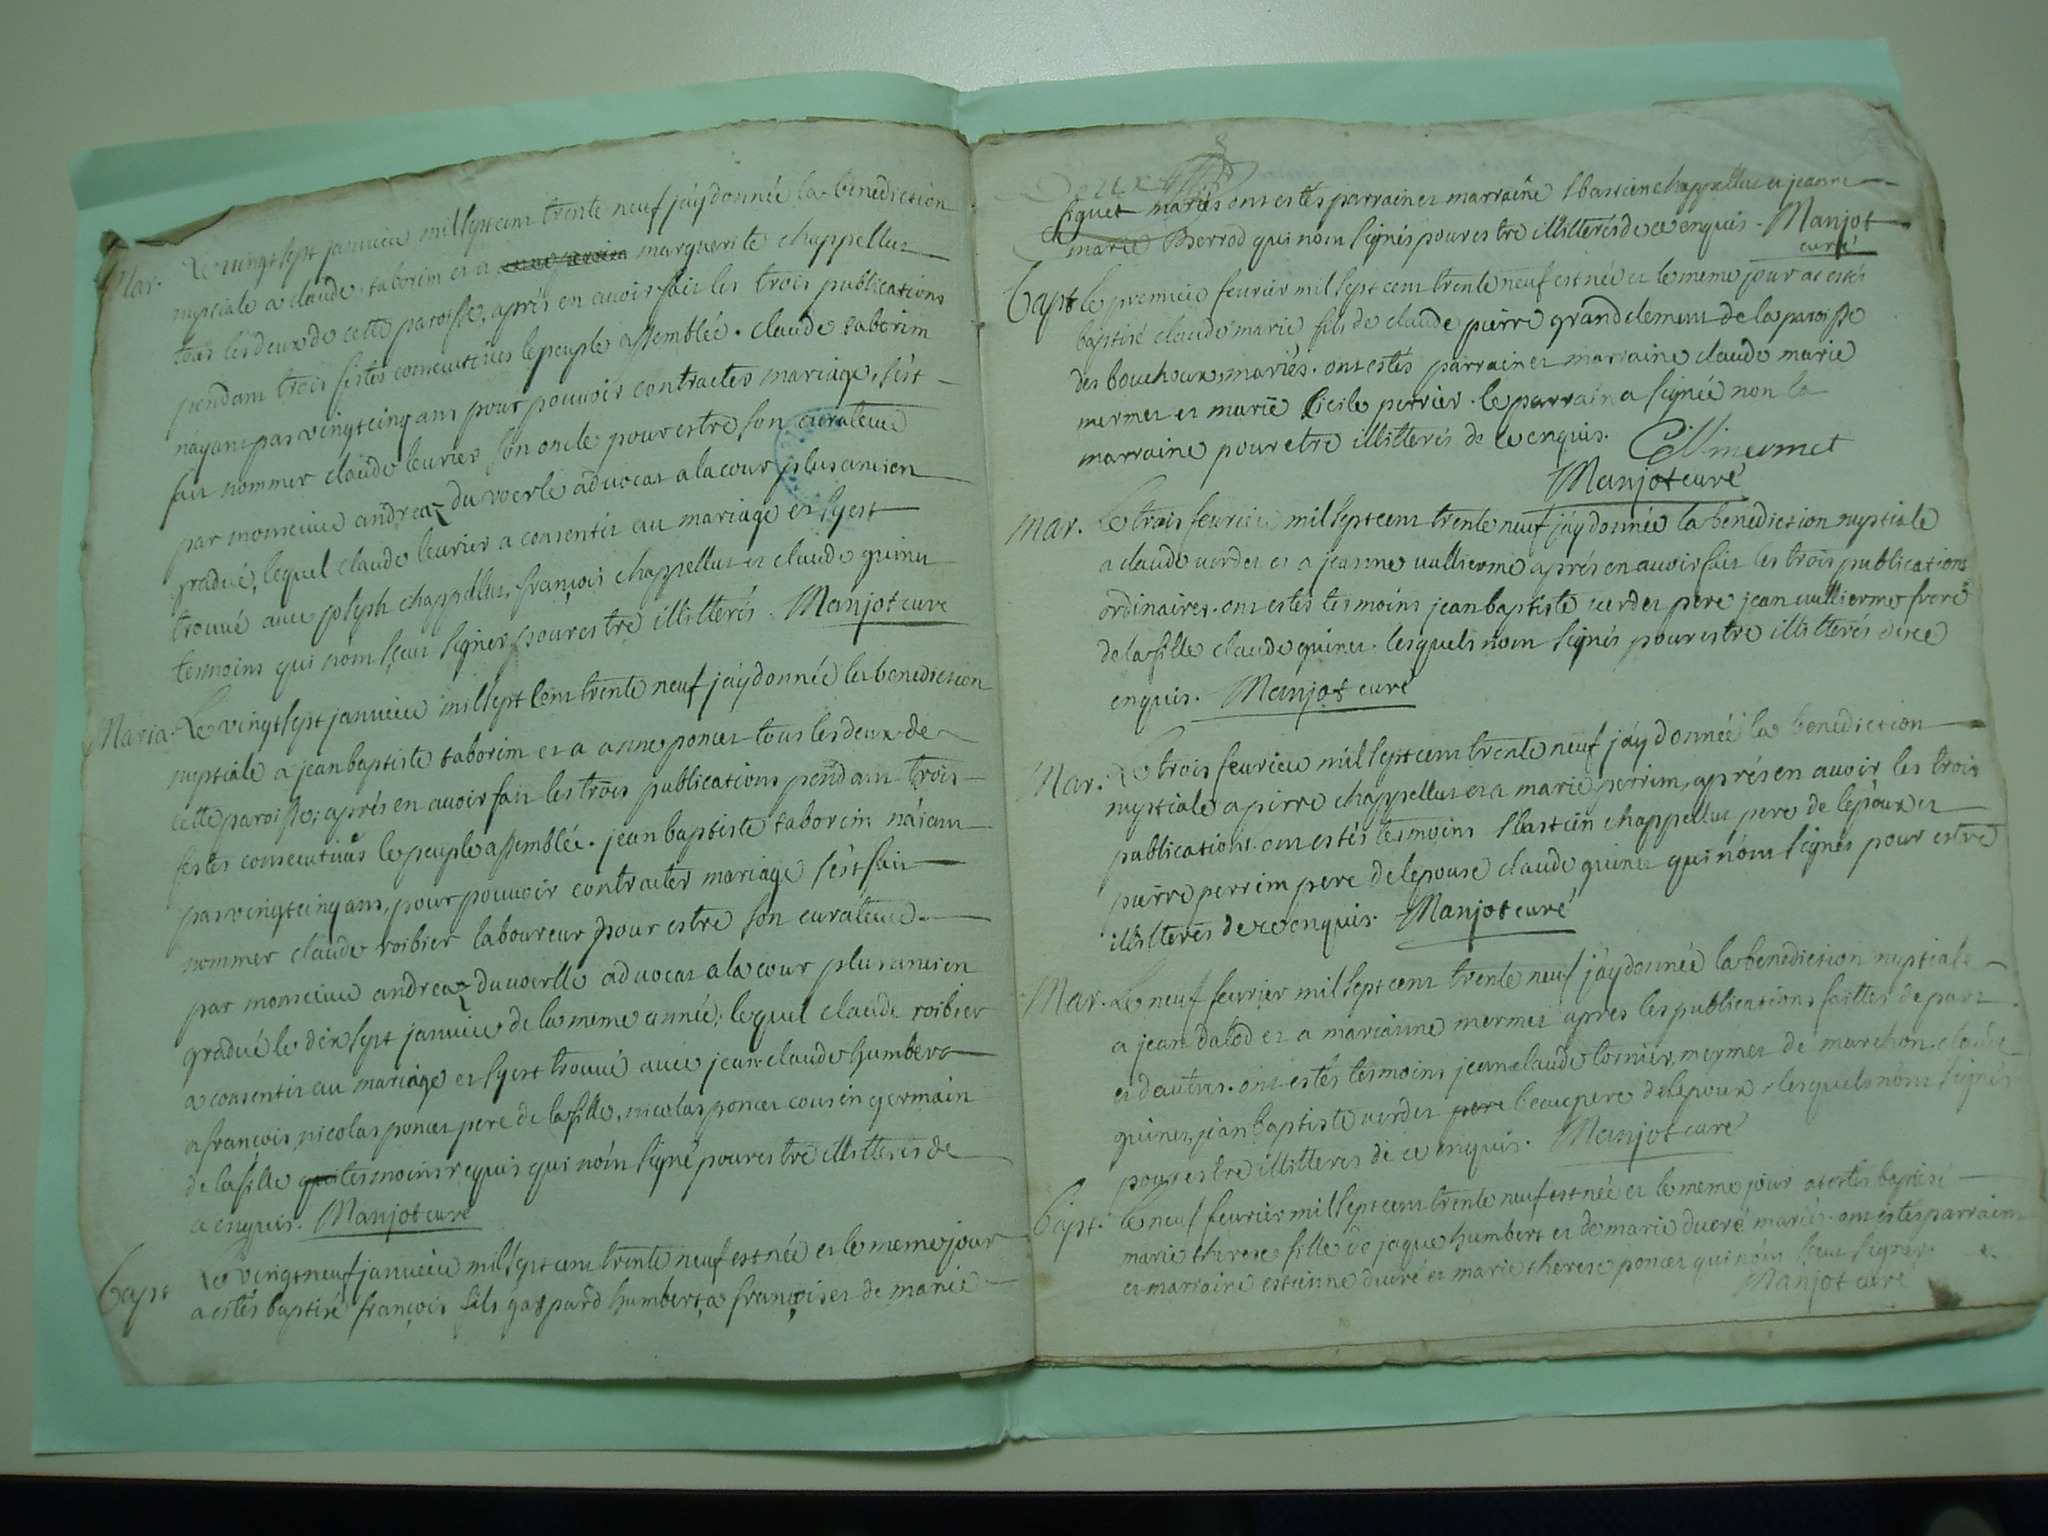 Mar. Le vingt sept janvieu mil sept cent trente neuf j'áy donnée la benediction
nuptiale a claude taborim et a marguerite chappelluz
tous les deux de cette paroisse, aprés en avoir fait les trois publications
pendant trois festes consecutives le peuple assemblée. claude taborim
náyant pas vingt cinq ans pour pouvoir contracter mariage, s'est
fait nommer claude leurier son oncle pour estre son curateur
par monseiue andrea du voerle advocat a la cour plus ancien
gradué, lequel claude leurier a consentit au mariage et sy est
trouvé avec joseph chappelluz, françois chappelluz et claude guinet
tesmoins qui nom sçeut signer pour estre illitterés. Manjot curé
Maria. Le vingt sept janvieu mil sept cent trente neuf j'áy donnée la benediction
nuptiale a jean baptiste taborim et a anne poncet tous les deux de
cette paroisse; aprés en avoir fait les trois publications pendant trois
festes consecutives le peuple assemblée. jean baptiste taborim náiant
pas vingt cinq ans, pour pouvoir contracter mariage s'est fait
nommer claude roibier laboureur pour estre son curateur
par monseiue andrea du voerlle advocat a la cour plus ancien
gradué le dix sept janvieu de la meme année; lequel claude roibier
a consentit au mariage et sy est trouvé avec jean claude humbert
a françois, nicolas poncet pere de la fille, nicolas poncet cousin germain
de la fille qui tesmoins requis qui nóm signé pour estre illitterés de
ce enquis. Manjot curé
Bapt Le vingt neuf janvieu mil sept cent trente neuf est née et le meme jour
a estés baptisé françois fils gaspard humbert a françois et de marie
Deux
siguet mariés ont estés parrain et marraine sbastien chappelluz et jeanne
marie Berrod qui nóm signés pour estre illitterés de ce enquis. Manjot
curé
Bapt le premieu fevrier mil sept cent trente neuf est née et le meme jour at estés
baptisé claude marie fils de claude pierre grandclement de la paroisse
des bouchoux mariés. ont estés parrain et marraine claude marie
mermet et marie cicile perrier. le parrain a signée non la
marraine pour etre illitterés de ce enquis. C M mermet
Manjot curé
Mar. Le trois fevrieu mil sept cent trente neuf j'áy donnée la benediction nuptiale
a claude verdet et a jeanne vullierme aprés en avoir fait les trois publications
ordinaires. ont estés tesmoins jean baptiste verdet pere jean vullierme frere
de la fille claude guinet. lesquels nóm signés pour estre illitterés de ce
enquis. Manjot curé
Mar. Le trois fevrieu mil sept cent trente neuf j'áy donnée la benediction
nuptiale a pirre chappelluz et a marie perrim, aprés en avoir les trois
publications. ont estés tesmoins sbastien chappelluz pere de lepoux et
pierre perrim pere de lepouse claude guinet qui nóm signés pour estre
illitterés de ce enquis. Manjot curé
Mar. Le neuf fevrier mil sept cent trente neuf j'áy donnée la benediction nuptiale
a jean dalod et a marianne mermet apres les publications faittes de part
et dautres. ont estés tesmoins jean claude tornier, mermet de marchon, claude
guinet, jean baptiste verdet pere beaupere de lepoux. lesquels nóm signés
pour estre illitteres de ce enquis. Manjot curé
Bapt. le neuf fevrier mil sept cent trente neuf est née et le meme jour at estés baptisé
marie therese fille de jaque humbert et de marie ducré mariés. ont estés parrain
et marraine estienne ducré et marie therese poncet qui nóm sceut signer.
Manjot curé